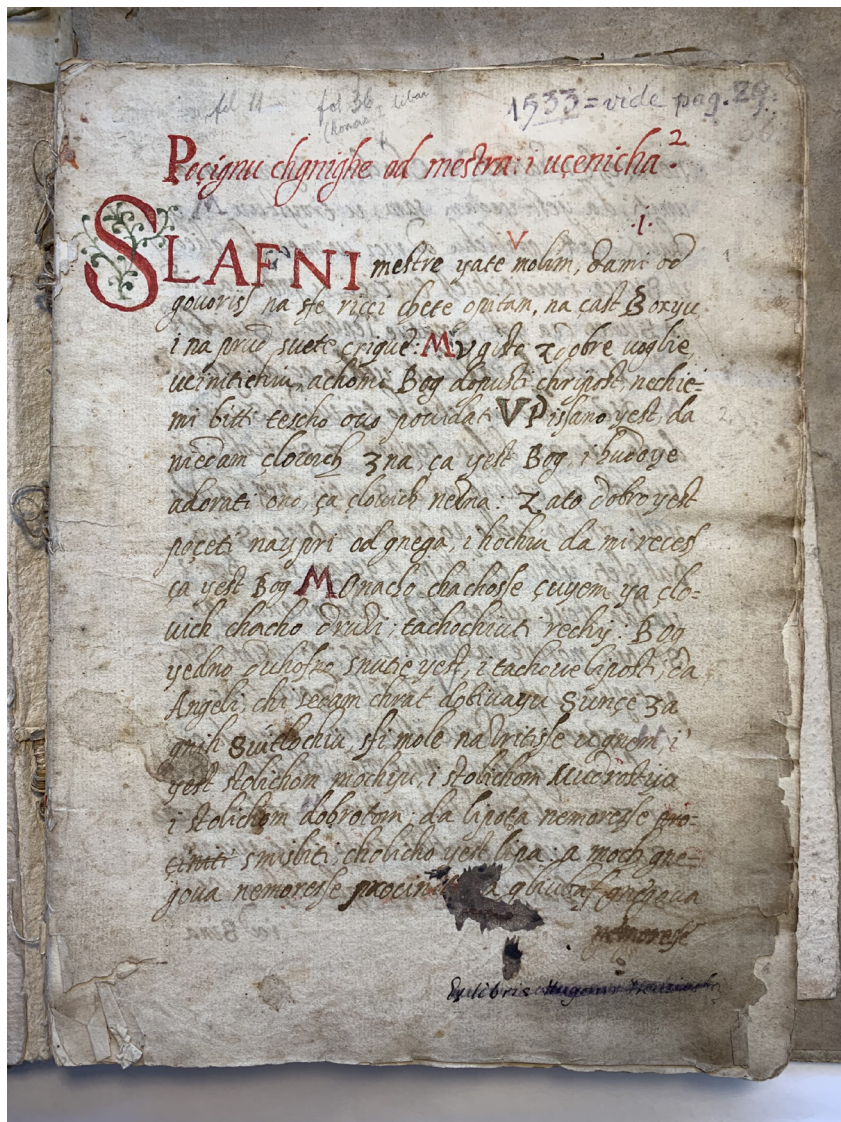 fol 11 fol 36 libar
1533 = vide pag. 29.
Poçignu chgnighe od mestra: i uçenicha. 2
1.
SLAFNI mestre yate molim, dami od
gouoriſ na ſfe riçci chete opitam, na čaſt Boxyu
i na prud ſuete crique: M V
dobre uoglie,
uçinitichiu, achomi Bog dopuſti chripoſt, nechie=
mi bitti teſcho ouo pouidat VPiſſano yeſt, da
niedam clouich zna, ça yeſt Bog, i hudoye
adorati ono, ça clouich nezna: Zato dobro yeſt
poçeti naypri od gnega, i hochiu da mi receſ
ça yeſt Bog MOnacho chachoſſe çuyem ya clo=
uich chacho drudi; tachochiuti rechij: Bog
yedno duhofno ſnutie yeſt, i tachoue lipoſti, da
Angeli, chi ſedam chrat dobivayu Sunçe za
gnih Suitlochiu, ſfi mole nadritiſſe ugnem, i
yeſt ſtolichom mochiyu, i ſtolichom Mudroſtiyu
i ſtolichom dobrotom; da lipoça nemoreſſe pro=
çiniti ſmiſliti; cholicho yeſt lipa; a moch gne=
goua nemoreſſe proçinit a glaubaſ gnegoua
nemoreſſe
Ex libris